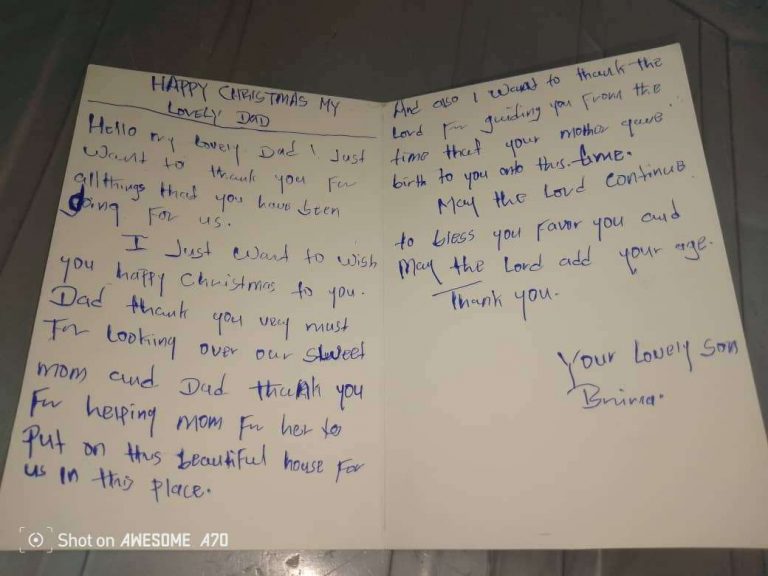 HAPPY CHRISTMAS MY
LOVELY DAD
Hello my lovely Dad I Just
Want to thank you For
all things that you have been
doing For us.
I Just Want to wish
you happy Christmas to you.
Dad thank you very must
For Looking over our sweet
mom and Dad thank you
For helping mom For her to
Put on this beautiful house For
us in this place.
And also I Want to thank the
Lord For guiding you From the
time that your mother gave
birth to you onto this time.
May the Lord continue
to bless you Favor you and
May the Lord add your age.
Thank you.
Your Lovely Son
Shot on AWESOME A70